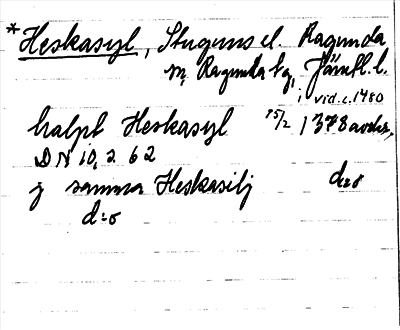 *Heskasyl, Stuguns el. Ragunda
sn, Ragunda tg, Jämtl. l.
i vid. c. 1480
halpt Heskasyl 15/2 1378 avskr,
DN 10, s 62
j samma Heskasilj d:o
d:o